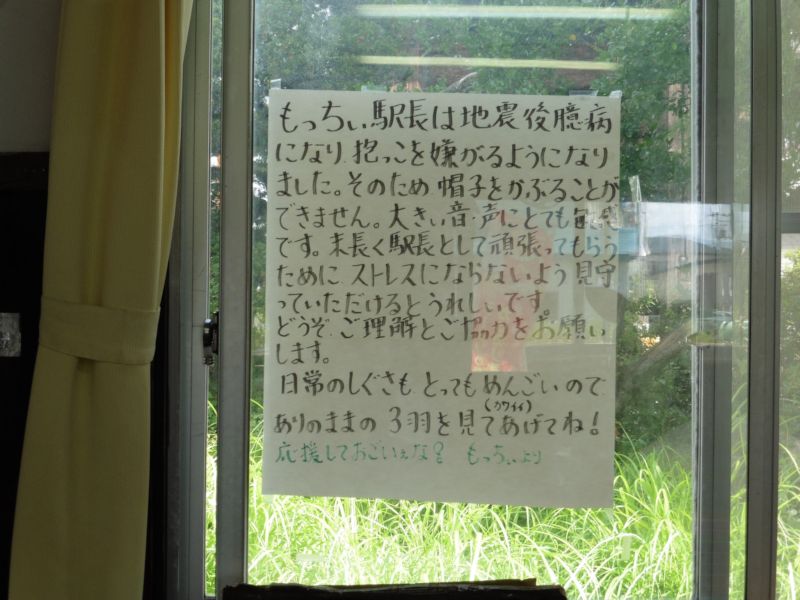 もっちぃ駅長は地震後臆病
になり 抱っこを嫌がるようになり
ました。そのため 帽子をかぶることが
できません。大きい音・声にとても敏感
です。末長く駅長として頑張ってもらう
ために ストレスにならないよう 見守
っていただけるとうれしいです。
どうぞ ご理解とご協力をお願い
します。
日常のしぐさも とってもめんごいので
(カワイイ)
ありのままの 3羽を見てあげてね!
応援しておごいぇな!! もっちぃより